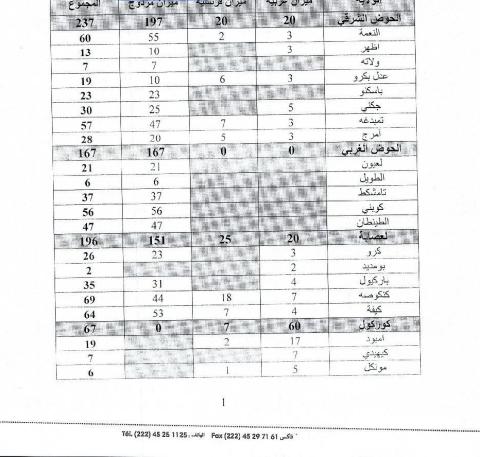 المجموع
الحوض الشرقي 20 20 197 237
النعمة 3 2 55 60
اظهر 3 10 13
ولاته 7 7
عدل بكرو 3 6 10 19
باسكنو 23 23
جكني 5 25 30
تمبدغه 3 7 47 57
امرج 3 5 20 28
الحوض الغربي 0 0 167 167
لعيون 21 21
الطويل 6 6
تامشكط 37 37
كوبني 56 56
الطينطان 47 47
لعصابة 20 25 151 196
كرو 3 23 26
بومديد 2 2
باركيول 4 31 35
كنكوصه 7 18 44 69
كيفة 4 7 53 64
كوركول 60 7 0 67
امبود 17 2 19
كيهيدي 7 7
مونكل 5 1 6
1
Tél. (222) 45 25 11 25 : الهاتف Fax (222) 45 29 71 61 فاكس